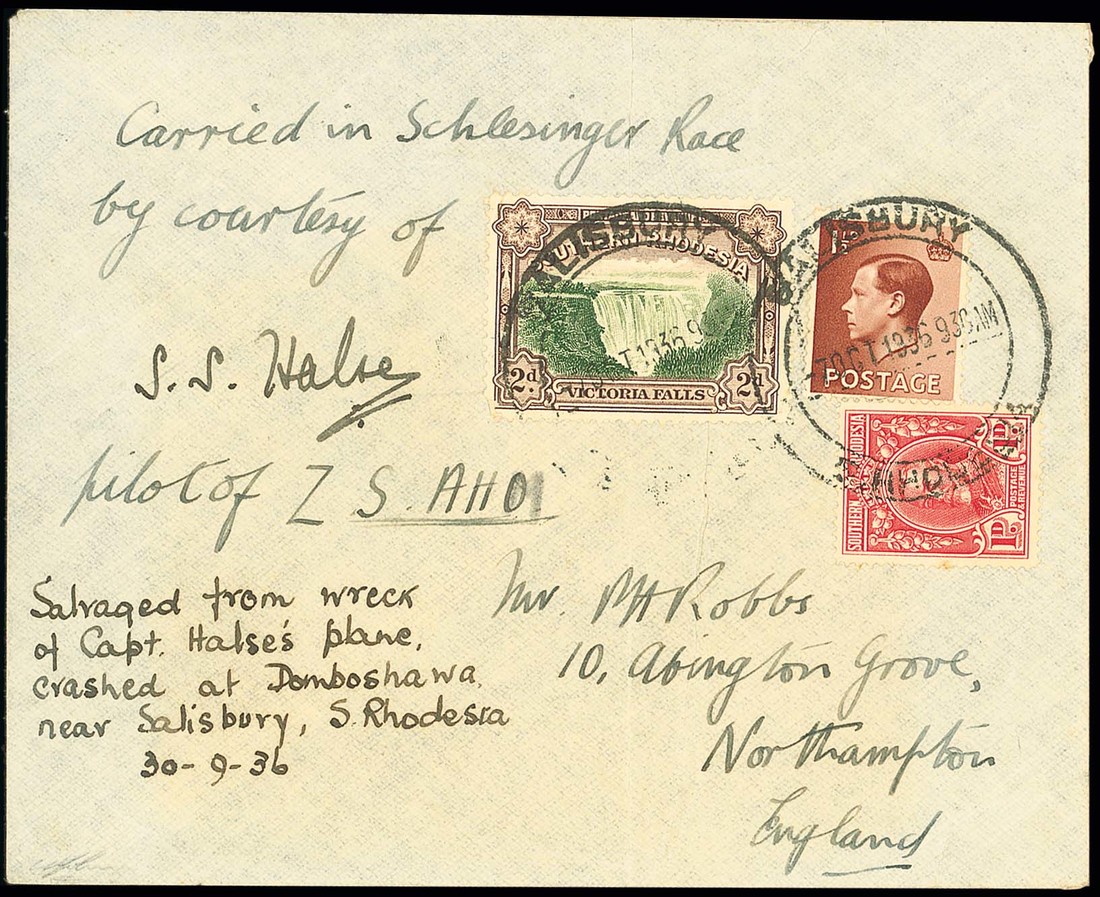 Carried in Schlesinger Race
by courtesy of
S. S. Halse
pilot of Z S. AHO
Salvaged from wreck
of Capt. Halse's plane,
crashed at Domboshawa,
near Salisbury, S. Rhodesia
30-9-36
SOUTHERN RHODESIA
2d 2d
VICTORIA FALLS
SALISBURY
T 1936 9
1½D
POSTAGE
SALISBURY
7 OCT 1936 930 AM
SOUTHERN RHODESIA
1D 1D
POSTAGE
& REVENUE
Mr. PH Robbs
10, Abington Grove,
Northampton
England